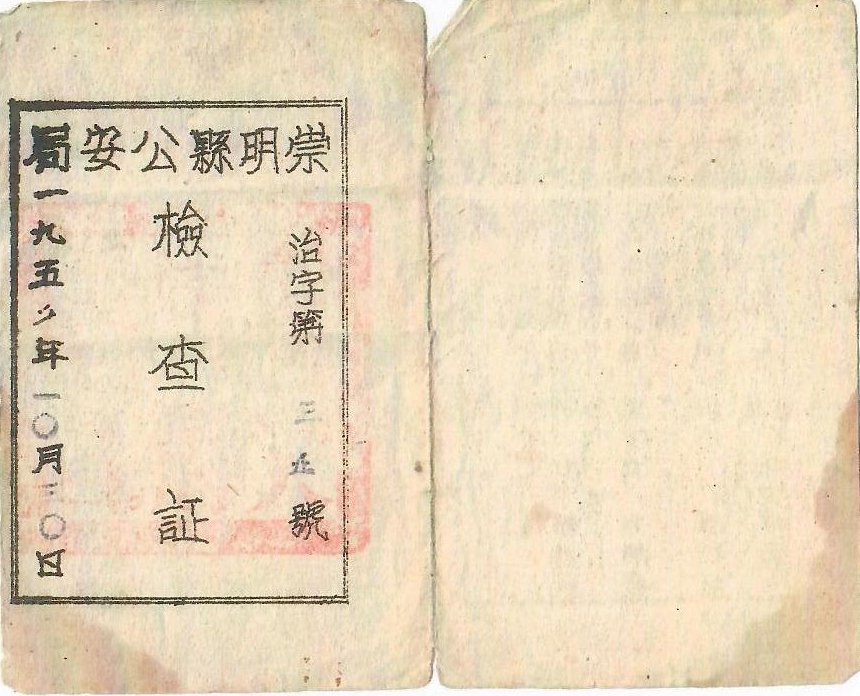 崇明縣公安局
治字第三五號
檢查証
一九五年一〇月三〇日